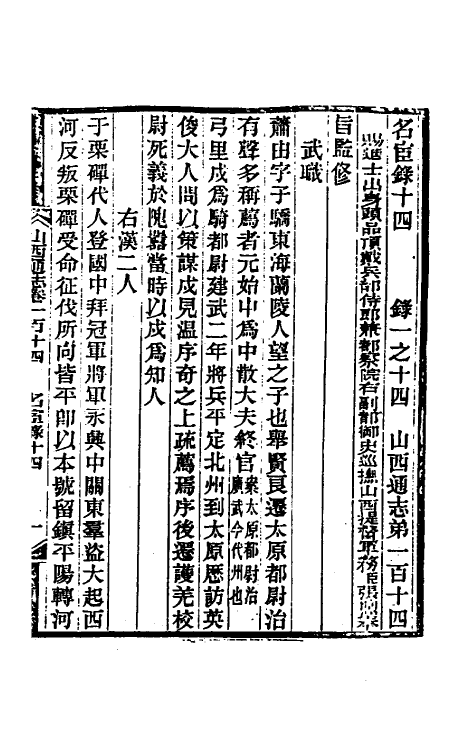 名宦錄十四　錄一之十四　山西通志第一百十四
賜進士出身頭品頂戴兵部侍郎兼都察院右副都御史巡撫山西提督軍務臣張
旨監修
武職
蕭由字子驕東海蘭陵人望之子也舉賢良遷太原都尉治
有聲多稱薦者元始中爲中散大夫終官案太原都尉治廣武今代州也
弓里戍爲騎都尉建武二年將兵平定北州到太原歷訪英
俊大人問以策謀戍見溫序奇之上疏薦焉序後遷護羌校
尉死義於隗囂當時以戍爲知人
右漢二人
于栗磾代人登國中拜冠軍將軍永興中關東羣盜大起西
河反叛栗磾受命征伐所向皆平即以本號留鎮平陽轉河
山西通志卷一百十四　名宦錄十四　一